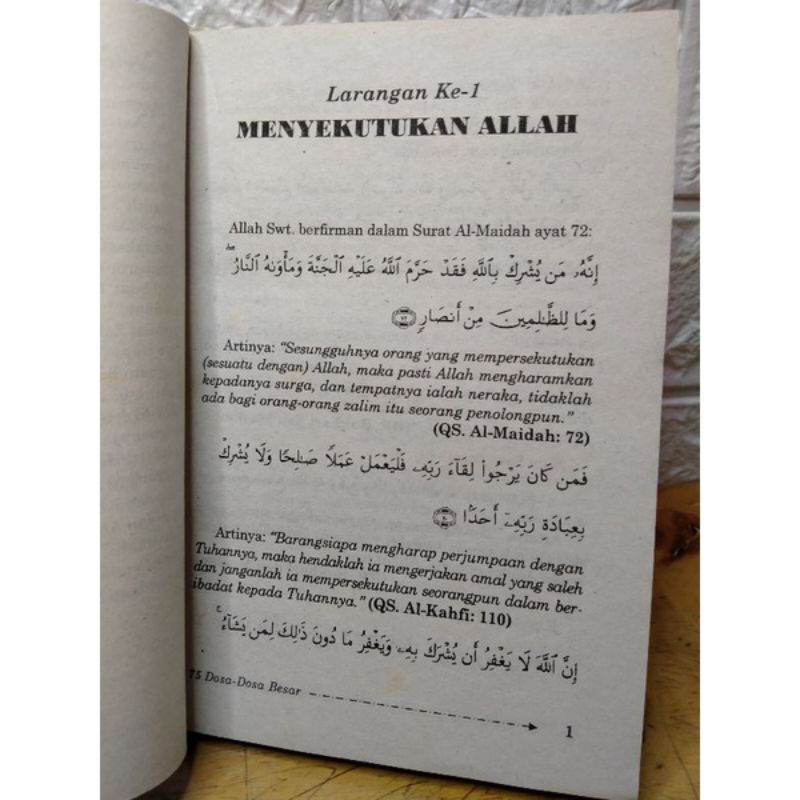 Larangan Ke-1
MENYEKUTUKAN ALLAH
Allah Swt. berfirman dalam Surat Al-Maidah ayat 72:
إِنَّهُۥ مَن يُشْرِكْ بِٱللَّهِ فَقَدْ حَرَّمَ ٱللَّهُ عَلَيْهِ ٱلْجَنَّةَ وَمَأْوَىٰهُ ٱلنَّارُ ۖ
وَمَا لِلظَّـٰلِمِينَ مِنْ أَنصَارٍ ﴿٧٢﴾
Artinya: “Sesungguhnya orang yang mempersekutukan
(sesuatu dengan) Allah, maka pasti Allah mengharamkan
kepadanya surga, dan tempatnya ialah neraka, tidaklah
ada bagi orang-orang zalim itu seorang penolongpun.”
(QS. Al-Maidah: 72)
فَمَن كَانَ يَرْجُوا۟ لِقَآءَ رَبِّهِۦ فَلْيَعْمَلْ عَمَلًا صَـٰلِحًا وَلَا يُشْرِكْ
بِعِبَادَةِ رَبِّهِۦٓ أَحَدًۢا
Artinya: “Barangsiapa mengharap perjumpaan dengan
Tuhannya, maka hendaklah ia mengerjakan amal yang saleh
dan janganlah ia mempersekutukan seorangpun dalam ber-
ibadat kepada Tuhannya.” (QS. Al-Kahfi: 110)
إِنَّ ٱللَّهَ لَا يَغْفِرُ أَن يُشْرَكَ بِهِۦ وَيَغْفِرُ مَا دُونَ ذَٰلِكَ لِمَن يَشَآءُ ۚ
75 Dosa-Dosa Besar
1